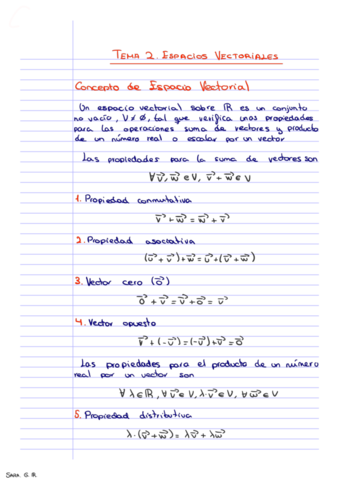 TEMA 2. ESPACIOS VECTORIALES
Concepto de Espacio Vectorial
Un espacio vectorial sobre ℝ es un conjunto
no vacío, V ≠ ∅, tal que verifica unas propiedades
para las operaciones suma de vectores y producto
de un número real o escalar por un vector
Las propiedades para la suma de vectores son
∀ v⃗, w⃗ ∈ V, v⃗ + w⃗ ∈ V
1. Propiedad conmutativa
v⃗ + w⃗ = w⃗ + v⃗
2. Propiedad asociativa
(u⃗ + v⃗) + w⃗ = u⃗ + (v⃗ + w⃗)
3. Vector cero (o⃗)
o⃗ + v⃗ = v⃗ + o⃗ = v⃗
4. Vector opuesto
v⃗ + (-v⃗) = (-v⃗) + v⃗ = o⃗
Las propiedades para el producto de un número
real por un vector son
∀ λ ∈ ℝ, ∀ v⃗ ∈ V, λ·v⃗ ∈ V, ∀ w⃗ ∈ V
5. Propiedad distributiva
λ·(v⃗ + w⃗) = λv⃗ + λw⃗
SARA G. R